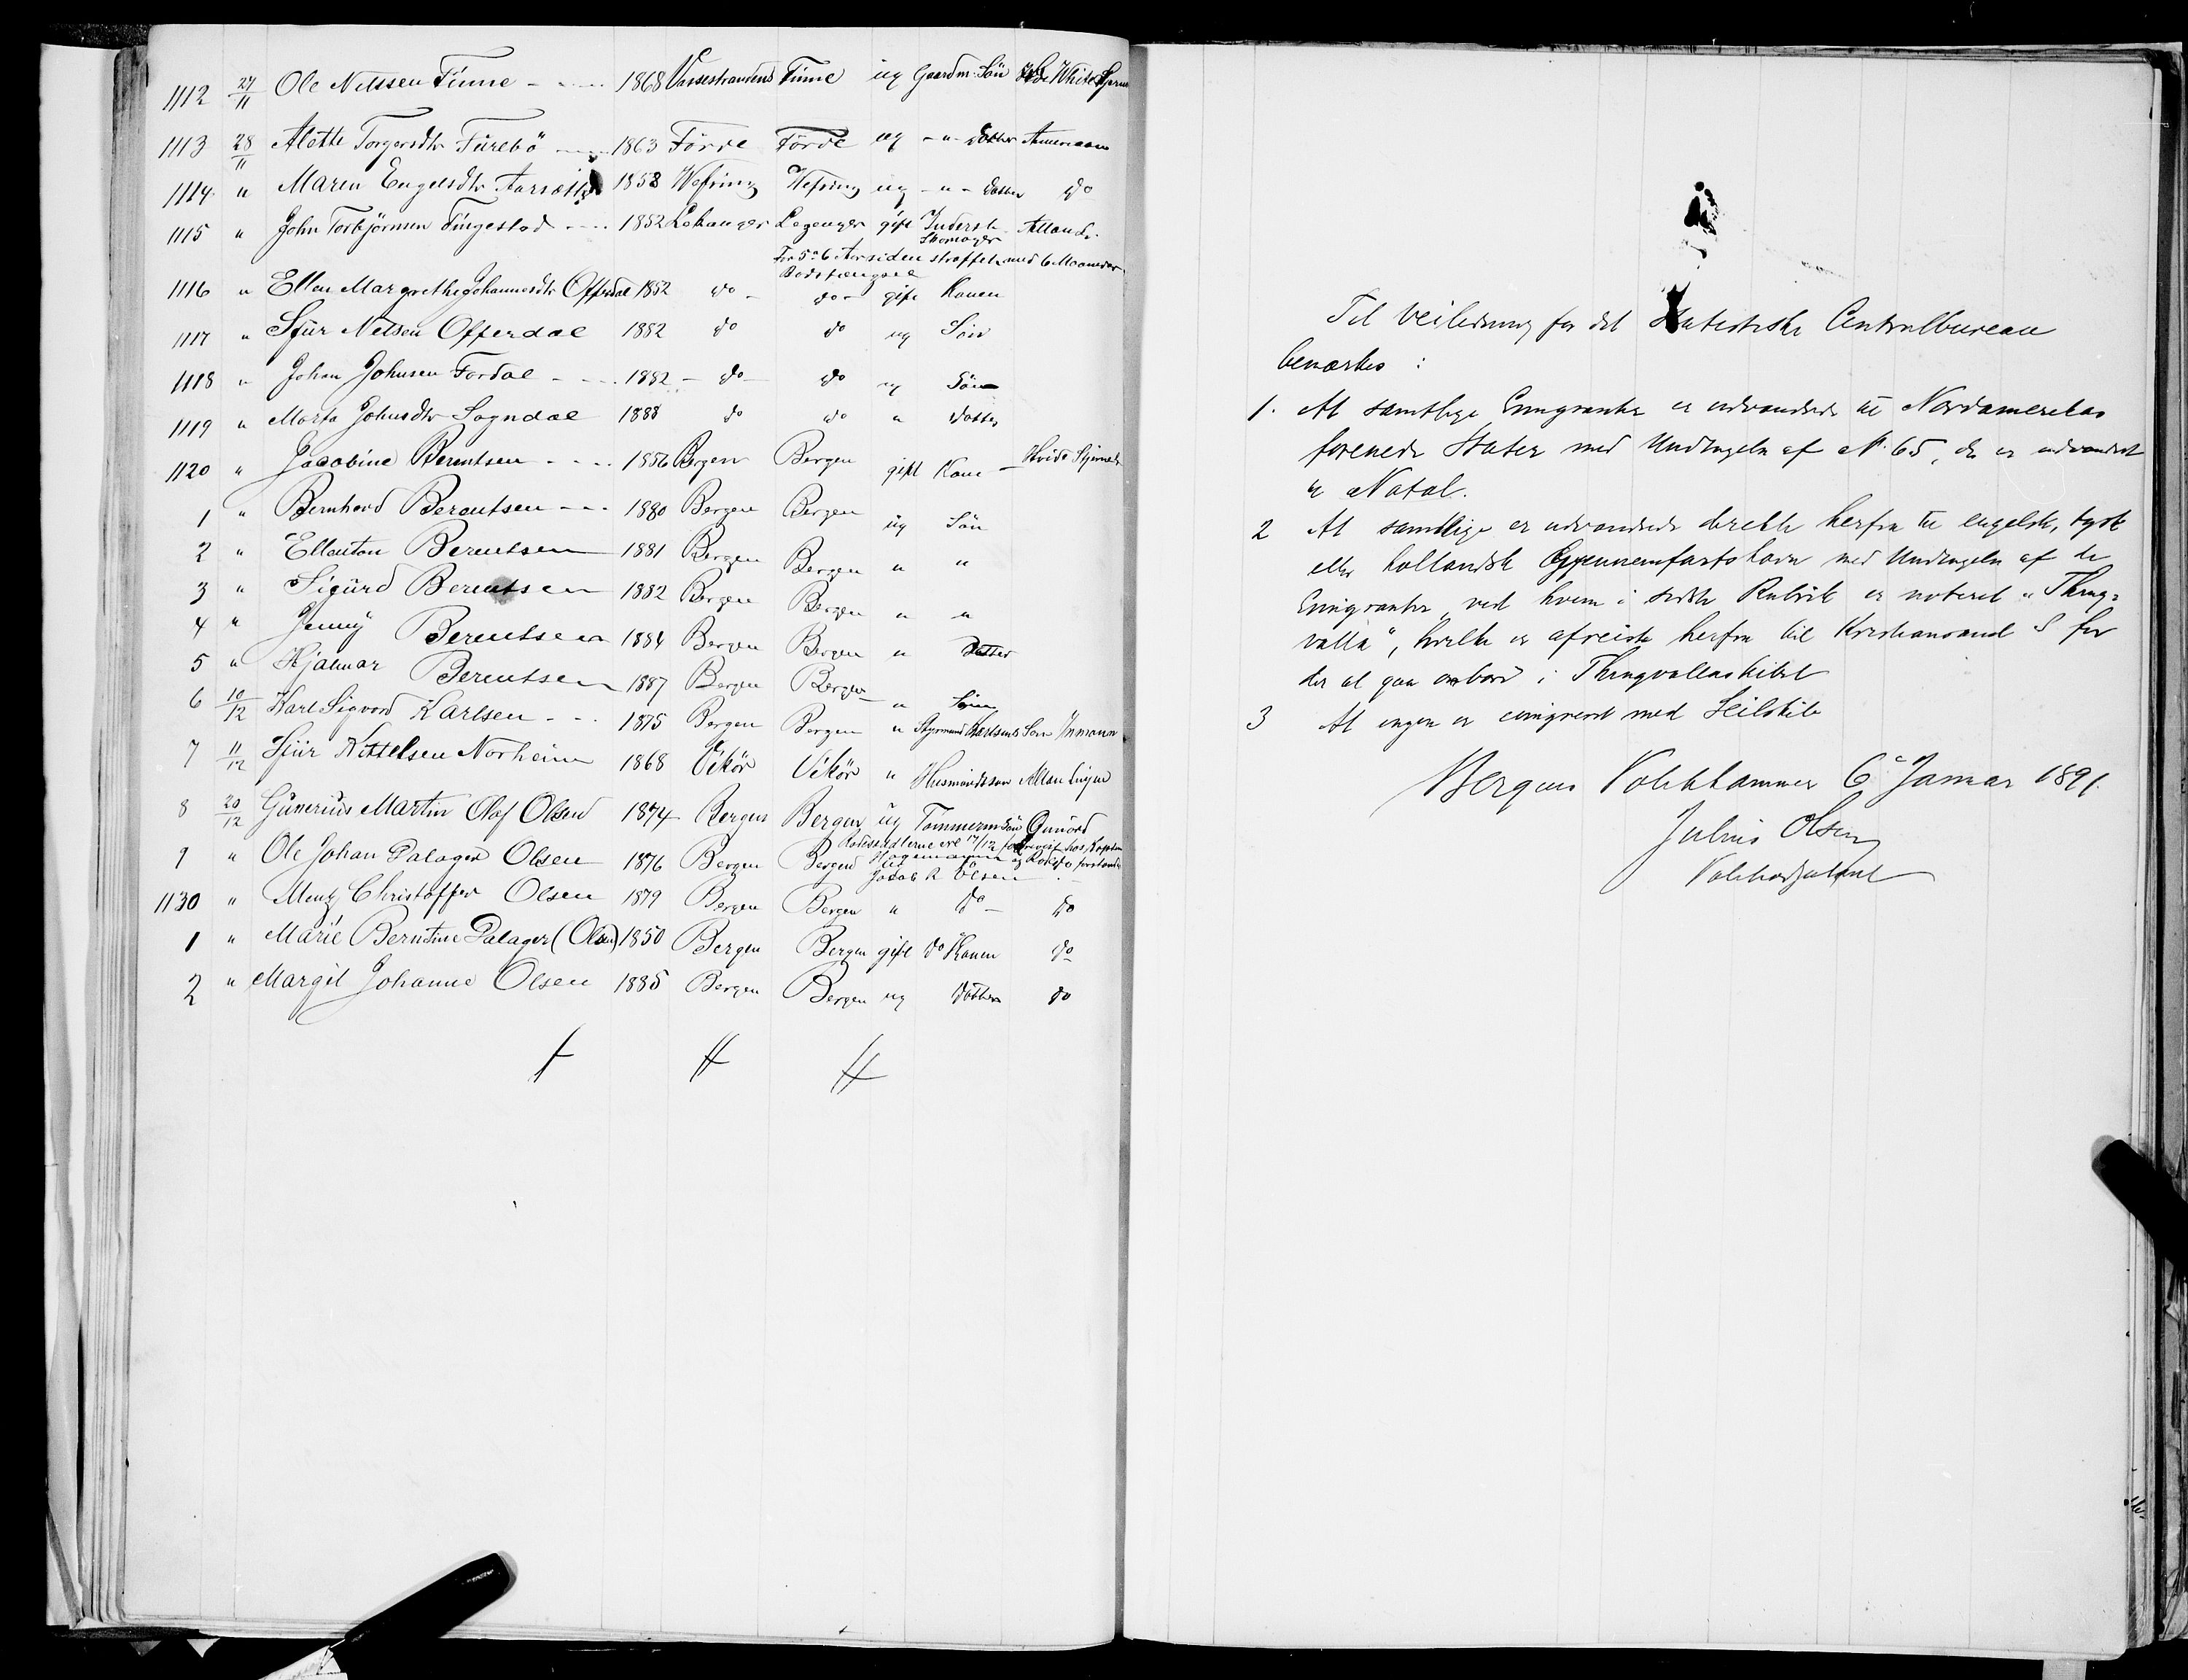 1112 27/11 Ole Nilssen Finne 1868 Vossestrandens Finne ug Gaardm. Søn White
1113 28/11 Alette Torgersdtr Furebö 1863 Förde Förde ug - " - Datter American
1114 " Maren Engelsdtr 1858 Wefring Wefring ug - " - Datter do
1115 " John Torbjörnsen Fingestad 1852 Lekanger gift Inderst Allan L.
Skomager
For 5 a 6 Aar siden straffet med 6 Maaneders
Bodsfængsel
1116 " Ellen Margrethe Johannesdtr Offerdal 1852 do do gift Konen
1117 " Sjur Nelsen Offerdal 1882 do do ug Sön
1118 " Johan Johnsen Fardal 1882 do do ug Sön
1119 " Marta Johnsdtr Sogndal 1888 do do " Datter
1120 " Jacobine Berentsen 1856 Bergen Bergen gift Kone Hvide Stjerne
1 " Bernhard Berentsen 1880 Bergen Bergen ug Sön
2 " Ellanton Berentsen 1881 Bergen Bergen " "
3 " Sigurd Berentsen 1882 Bergen Bergen " "
4 " Jenny Berentsen 1884 Bergen Bergen " Datter
5 " Hjalmar Berentsen 1887 Bergen Bergen " Sön
6 10/12 Karl Sigvard Karlsen 1875 Bergen Bergen " Styrmand Karlsens Søn Inmann
7 11/12 Sjur Kittelsen Norheim 1868 Vikör Vikör " Husmandssøn Allan Linjen
8 20/12 Gunerius Martin Olaf Olsen 1874 Bergen Bergen ug Tömmerm Sön
Rodesedlerne ere 17/12 forevist hos Kaptein
9 " Ole Johan Palager Olsen 1876 Bergen Bergen ug Hagemann og Rodeforstander
Jacob R Olsen
1130 " Mentz Christoffer Olsen 1879 Bergen Bergen " do do
1 " Marie Berntine Palager (Olsen) 1850 Bergen Bergen gift do Konen do
2 " Margit Johanne Olsen 1885 Bergen Bergen ug Datter do
Til Veiledning for det Statistiske Centralbureau
bemærkes :
1. At samtlige Emigranter er udvandrede til Nordamerikas
forenede Stater med Undtagelse af N. 65, der er udvandret
til Natal.
2 At samtlige er udvandrede direkte herfra til engelsk, tysk
eller hollandsk Gjennemfartshavn med Undtagelse af de
Emigranter ved hvem i sidste Rubrik er noteret "Thing=
valla", hvilke er afreiste herfra til Kristiansand S for
der at gaa ombord i Thingvallaskibet
3 At ingen er emigreret med Seilskib
Bergens Politikammer 6 Januar 1891.
Julius Olsen
Politiadjutant